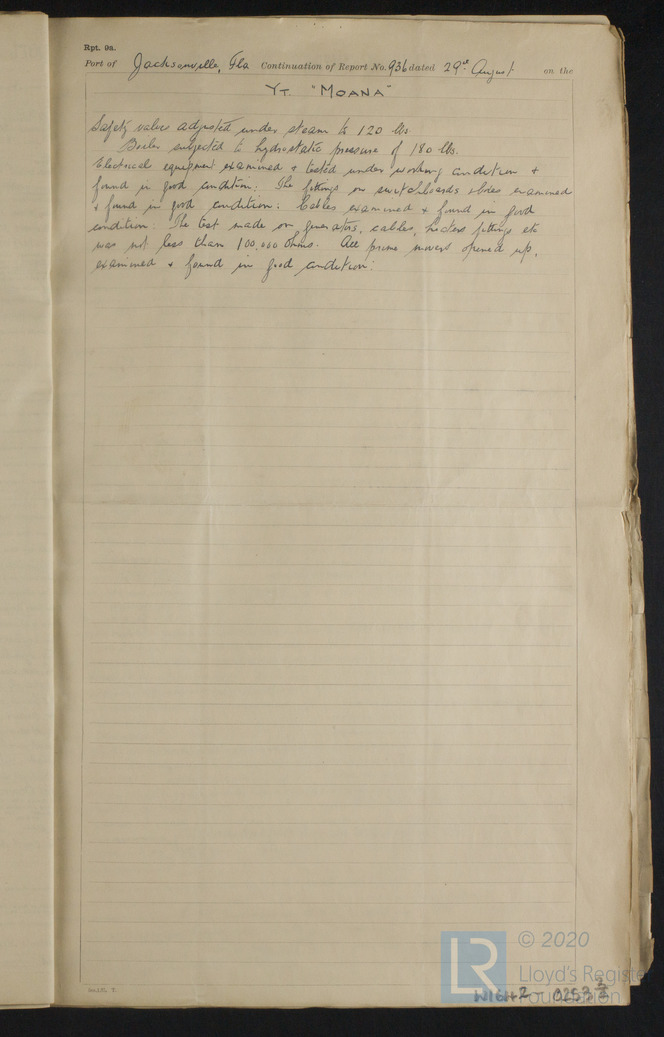 Rpt. 9a.
Port of Jacksonville, Fla Continuation of Report No. 936 dated 29th August on the
Yt. "MOANA"
Safety valves adjusted under steam to 120 lbs
Boiler subjected to hydrostatic pressure of 180 lbs.
Electrical equipment examined & tested under working condition &
found in good condition: The fittings on switchboards examined
& found in good condition: Cables examined & found in good
condition: The test made on generators, cables, heaters fittings etc
was not less than 100,000 ohms. All prime movers opened up,
examined & found in good condition:
© 2020
LR Lloyd's Register
Foundation
W1642 - 0253 2/2